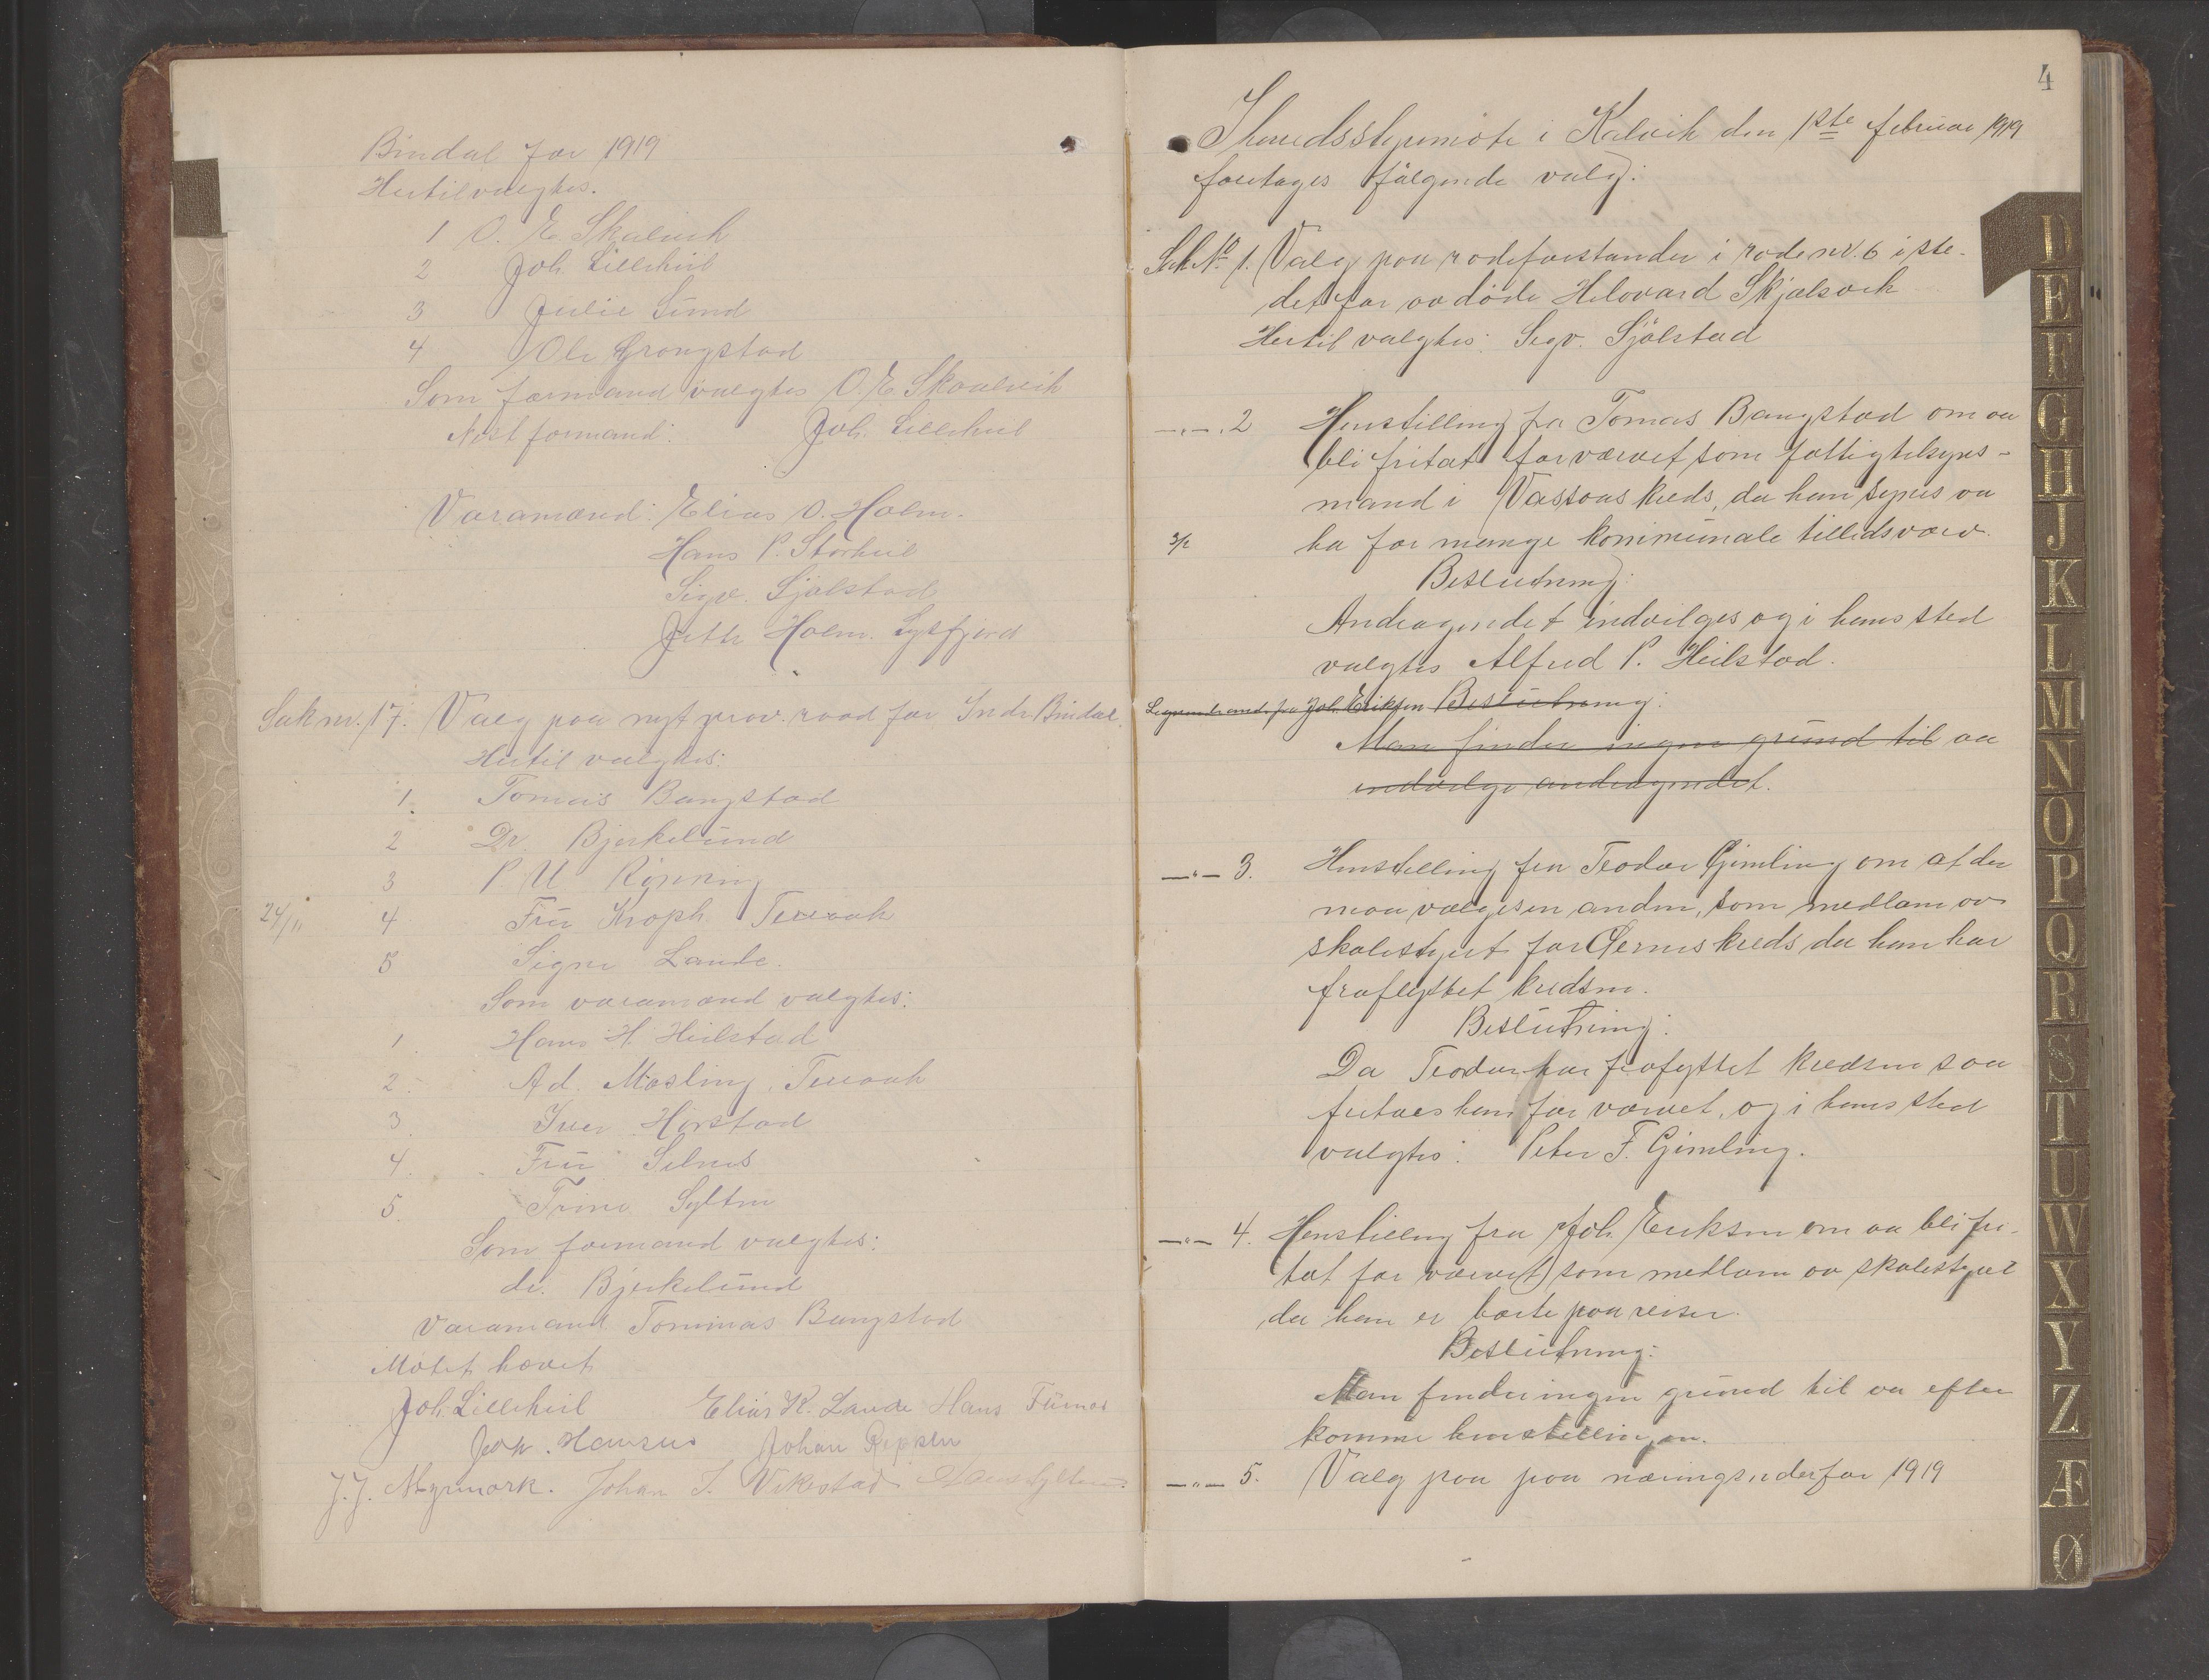 Bindal for 1919
Hertil valgtes.
1 O. E. Skalvik
2 Joh. Lilleheil
3 Julie Sund
4 Ole Grongstad
Som formand valgtes O. E. Skaalvik
Nest formand: Joh. Lilleheil
Varamænd: Elias O. Holm.
Hans P. Storheil
Sigv. Sjølstad
Jette Holm.
Sak nr. 17. Valg paa nyt prov. raad for Indr. Bindal.
Hertil valgtes:
1. Tomas Bangstad
2 Dr. Bjerkelund
3 P. U.
24/11 4 Fru Kroph. Terraak
5 Signe Lande.
Som varamænd valgtes:
1 Hans H. Heilstad
2 Ad. Møsling, Terraak
3 Iver Horstad
4. Fru Selnes
5. Trine Sylten
Som formand valgtes:
dr. Bjerkelund
Varamand Tommas Bangstad
Møtet hævet
Joh. Lilleheil Elias K. Lande Hans Furnes
Joh. Hansen Johan
J. J. Myrmark. Johan J. Vikestad Hans Sylten
4
Herredsstyremøte i Kalvik den 1ste februar 1919
foretages følgende valg:
Sak No 1. Valg paa rodeforstander i rode nr. 6 iste-
det for avdøde Helovard Skjelsvik
Hertil valgtes: Sigv. Sjølstad
—"— 2 Henstilling fra Tomas Bangstad om aa
bli fritat for værvet som fattigtilsyns-
mand i Vassaas kreds, da han synes aa
3/2 ha for mange kommunale tillidsværv.
Beslutning:
Andragendet indvilges og i hans sted
valgtes Alfred P. Heilstad.
fra Joh. Eriksen Beslutning:
Man finder ingen grund til aa
indvilge andragendet.
—"— 3. Henstilling fra Teodor Gimling om at der
maa vælges en anden, som medlem av
skolestyret for Øernes kreds da han har
fraflyttet kredsen.
Beslutning:
Da Teodor har fraflyttet kredsen saa
fritaes han for værvet, og i hans sted
valgtes: Peter F. Gimling.
—"— 4. Henstilling fra Joh. Eriksen om aa bli fri-
tat for værvet som medlem av skolestyret
da han er borte paa reiser.
Beslutning:
Man finder ingen grund til aa efter
komme henstillingen.
—"— 5. Valg paa paa næringsraderfor 1919
D
E
F
G
H
J
K
L
M
N
O
P
Q
R
S
T
U
W
X
Y
Z
Æ
Ø